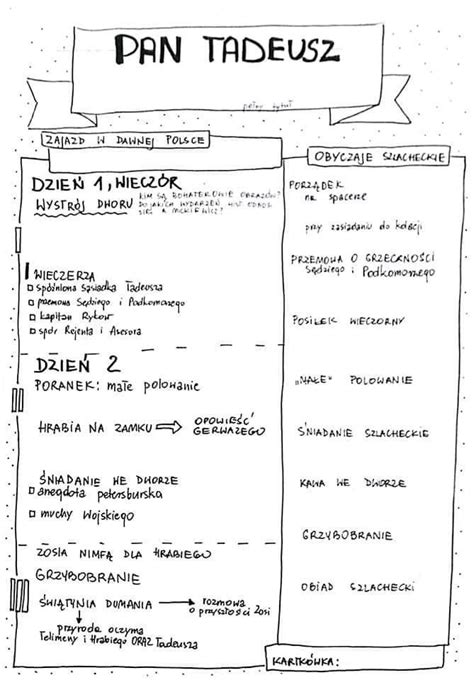 PAN TADEUSZ
pełny tytuł
ZAJAZD W DAWNEJ POLSCE
DZIEŃ 1, WIECZÓR
WYSTRÓJ DWORU
KIM SĄ BOHATEROWIE OBRAZÓW?
DO JAKICH WYDARZEŃ HIST. ODNOSI
SIĘ A. MICKIEWICZ?
I WIECZERZA
spóźniona sąsiadka Tadeusza
przemowa Sędziego i Podkomorzego
kapitan Rykow
spór Rejenta i Asesora
DZIEŃ 2
PORANEK: małe polowanie
HRABIA NA ZAMKU → OPOWIEŚĆ
GERWAZEGO
ŚNIADANIE WE DWORZE
anegdota petersburska
muchy Wojskiego
ZOSIA NIMFĄ DLA HRABIEGO
GRZYBOBRANIE
ŚWIĄTYNIA DUMANIA → rozmowa
o przyszłości Zosi
przyroda oczyma
Telimeny i Hrabiego ORAZ Tadeusza
OBYCZAJE SZLACHECKIE
PORZĄDEK
na spacerze
przy zasiadaniu do kolacji
PRZEMOWA O GRZECZNOŚCI
Sędziego i Podkomorzego
POSIŁEK WIECZORNY
„MAŁE" POLOWANIE
ŚNIADANIE SZLACHECKIE
KAWA WE DWORZE
GRZYBOBRANIE
OBIAD SZLACHECKI
KARTKÓWKA: